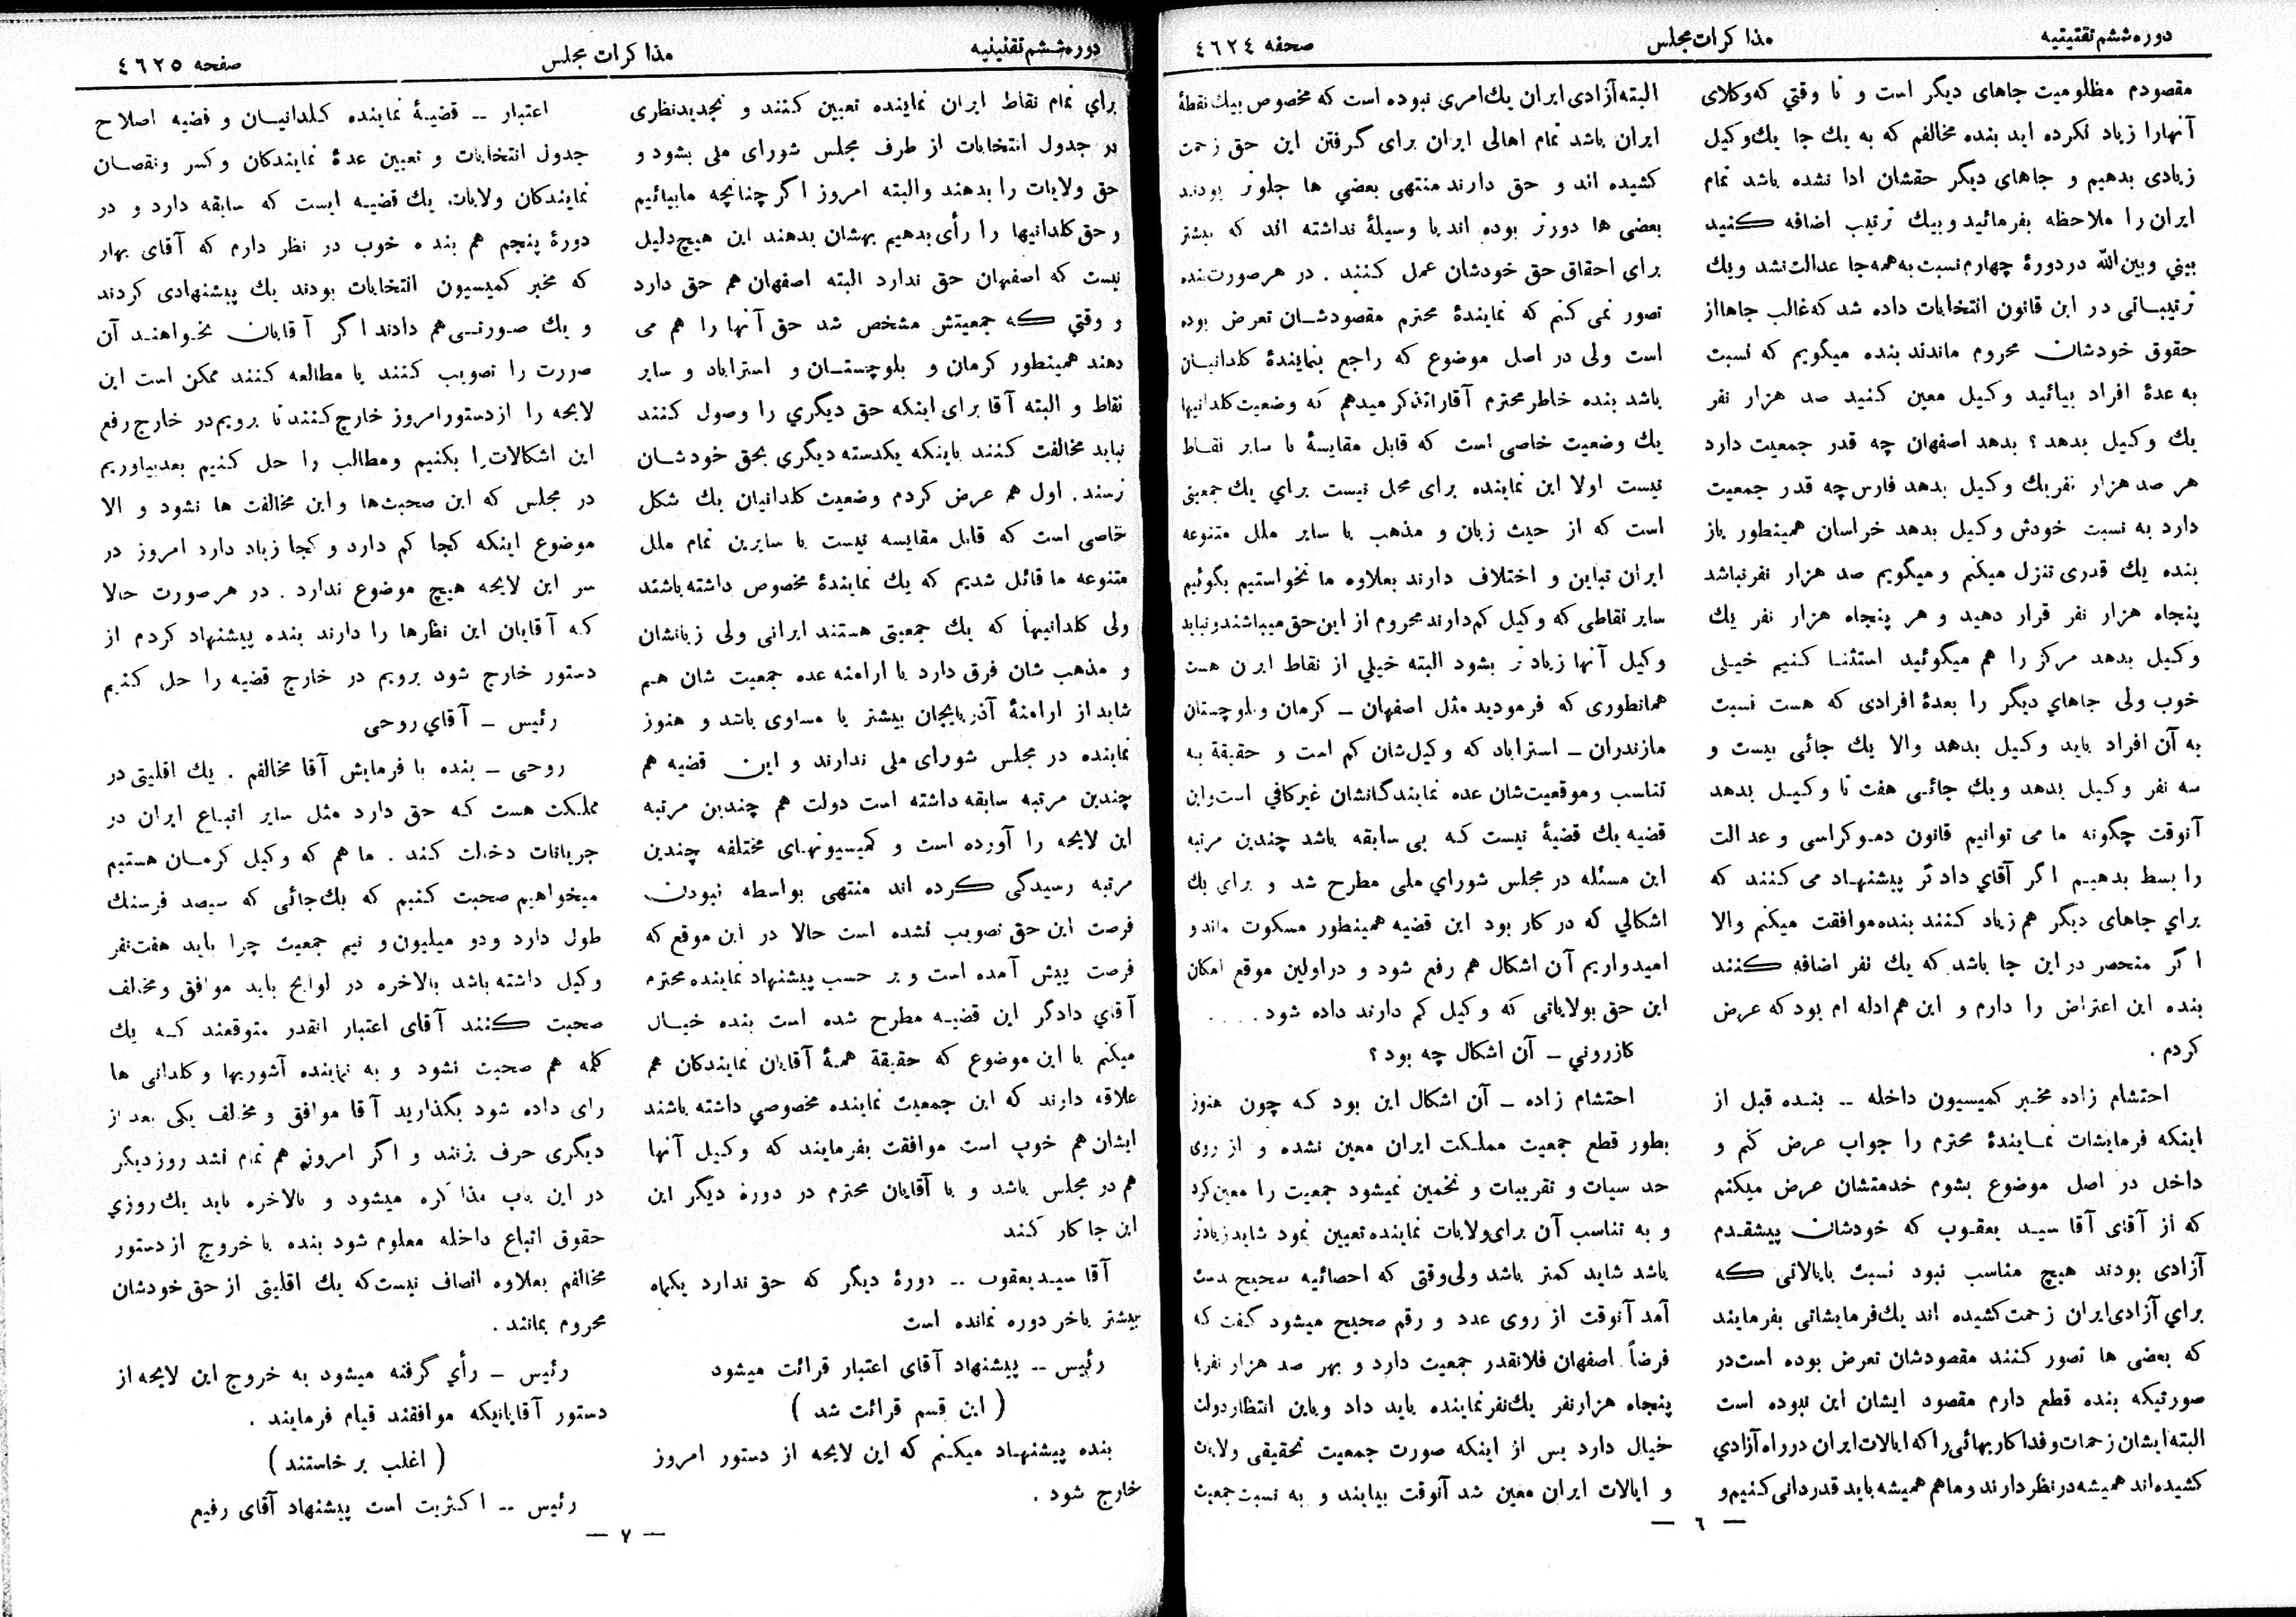 دوره ششم تقنینیه
مذاکرات مجلس
صحفه ٤٦٢٤
مقصودم مظلومیت جاهای دیگر است و تا وقتي که وکلای
آنهارا زیاد نکرده اید بنده مخالفم که به یك جا یك وکیل
زیادی بدهیم و جاهای دیگر حقشان ادا نشده باشد تمام
ایران را ملاحظه بفرمائید و بیك ترتیب اضافه کنید
بیني و بین الله در دورۀ چهارم نسبت به همه جا عدالت نشد و یك
ترتیباتی در این قانون انتخابات داده شد که غالب جاها از
حقوق خودشان محروم ماندند بنده میگویم که نسبت
به عدۀ افراد بیائید وکیل معین کنید صد هزار نفر
یك وکیل بدهد ؟ بدهد اصفهان چه قدر جمعیت دارد
هر صد هزار نفر یك وکیل بدهد فارس چه قدر جمعیت
دارد به نسبت خودش وکیل بدهد خراسان همینطور باز
بنده یك قدری تنزل میکنم و میگویم صد هزار نفر نباشد
پنجاه هزار نفر قرار دهید و هر پنجاه هزار نفر یك
وکیل بدهد مرکز را هم میگوئید استثنا کنیم خیلی
خوب ولی جاهاي دیگر را بعدۀ افرادی که هست نسبت
به آن افراد باید وکیل بدهد والا یك جائی بیست و
سه نفر وکیل بدهد و یك جائی هفت تا وکیل بدهد
آنوقت چگونه ما می توانیم قانون دموکراسی و عدالت
را بسط بدهیم اگر آقاي دادگر پیشنهاد می کنند که
براي جاهای دیگر هم زیاد کنند بنده موافقت میکنم والا
اگر منحصر در این جا باشد که یك نفر اضافه کنند
بنده این اعتراض را دارم و این هم ادله ام بود که عرض
کردم .
احتشام زاده مخبر کمیسیون داخله -- بنده قبل از
اینکه فرمایشات نمایندۀ محترم را جواب عرض کنم و
داخل در اصل موضوع بشوم خدمتشان عرض میکنم
که از آقای آقا سید یعقوب که خودشان پیشقدم
آزادی بودند هیچ مناسب نبود نسبت بایالاتی که
براي آزادی ایران زحمت کشیده اند یك فرمایشاتی بفرمایند
که بعضی ها تصور کنند مقصودشان تعرض بوده است در
صورتیکه بنده قطع دارم مقصود ایشان این نبوده است
البته ایشان زحمات و فداکاریهائی را که ایالات ایران در راه آزادي
کشیده اند همیشه در نظر دارند و ما هم همیشه باید قدردانی کنیم و
البته آزادی ایران یك امری نبوده است که مخصوص بیك نقطۀ
ایران باشد تمام اهالی ایران برای گرفتن این حق زحمت
کشیده اند و حق دارند منتهی بعضي ها جلوتر بودند
بعضی ها دورتر بوده اند یا وسیلۀ نداشته اند که بیشتر
برای احقاق حق خودشان عمل کنند . در هر صورت بنده
تصور نمی کنم که نمایندۀ محترم مقصودشان تعرض بوده
است ولی در اصل موضوع که راجع بنمایندۀ کلدانیان
باشد بنده خاطر محترم آقا را تذکر میدهم که وضعیت کلدانیها
یك وضعیت خاصی است که قابل مقایسۀ با سایر نقاط
نیست اولا این نماینده برای محل نیست براي یك جمعیتی
است که از حیث زبان و مذهب با سایر ملل متنوعه
ایران تباین و اختلاف دارند بعلاوه ما نخواستیم بگوئیم
سایر نقاطی که وکیل کم دارند محروم از این حق میباشند و نباید
وکیل آنها زیادتر بشود البته خیلي از نقاط ایران هست
همانطوری که فرمودید مثل اصفهان - کرمان و بلوچستان
مازندران - استراباد که وکیل شان کم است و حقیقة به
تناسب و موقعیت شان عده نمایندگانشان غیر کافي است و این
قضیه یك قضیۀ نیست که بی سابقه باشد چندین مرتبه
این مسئله در مجلس شوراي ملی مطرح شد و براي یك
اشکالي که در کار بود این قضیه همینطور مسکوت ماند و
امیدواریم آن اشکال هم رفع شود و در اولین موقع امکان
این حق بولایاتی که وکیل کم دارند داده شود . . . .
کازروني - آن اشکال چه بود ؟
احتشام زاده - آن اشکال این بود که چون هنوز
بطور قطع جمعیت مملکت ایران معین نشده و از روی
حد سیات و تقریبات و تخمین نمیشود جمعیت را معین کرد
و به تناسب آن برای ولایات نماینده تعیین نمود شاید زیادتر
باشد شاید کمتر باشد ولی وقتی که احصائیه صحیح بدست
آمد آنوقت از روی عدد و رقم صحیح میشود گفت که
فرضاً اصفهان فلانقدر جمعیت دارد و بهر صد هزار نفر یا
پنجاه هزار نفر یك نفر نماینده باید داد و باین انتظار دولت
خیال دارد پس از اینکه صورت جمعیت تحقیقی ولایات
و ایالات ایران معین شد آنوقت بیایند و به نسبت جمعیت
— ٦ —
دوره ششم تقنینیه
مذاکرات مجلس
صفحه ٤٦٢٥
برای تمام نقاط ایران نماینده تعیین کنند و تجدید نظری
در جدول انتخابات از طرف مجلس شورای ملی بشود و
حق ولایات را بدهند والبته امروز اگر چنانچه ما بیائیم
و حق کلدانیها را رأی بدهیم بهشان بدهند این هیچ دلیل
نیست که اصفهان حق ندارد البته اصفهان هم حق دارد
و وقتي که جمعیتش مشخص شد حق آنها را هم می
دهند همینطور کرمان و بلوچستان و استراباد و سایر
نقاط و البته آقا برای اینکه حق دیگري را وصول کنند
نباید مخالفت کنند باینکه یکدسته دیگری بحق خودشان
نرسند . اول هم عرض کردم وضعیت کلدانیان یك شکل
خاصی است که قابل مقایسه نیست با سایرین تمام ملل
متنوعه ما قائل شدیم که یك نمایندۀ مخصوص داشته باشند
ولی کلدانیها که یك جمعیتی هستند ایرانی ولی زبانشان
و مذهب شان فرق دارد با ارامنه عده جمعیت شان هم
شاید از ارامنۀ آذربایجان بیشتر یا مساوی باشد و هنوز
نماینده در مجلس شورای ملی ندارند و این قضیه هم
چندین مرتبه سابقه داشته است دولت هم چندین مرتبه
این لایحه را آورده است و کمیسیونهای مختلفه چندین
مرتبه رسیدگی کرده اند منتهی بواسطه نبودن
فرصت این حق تصویب نشده است حالا در این موقع که
فرصت پیش آمده است و بر حسب پیشنهاد نماینده محترم
آقاي دادگر این قضیه مطرح شده است بنده خیال
میکنم با این موضوع که حقیقة همۀ آقایان نمایندکان هم
علاقه دارند که این جمعیت نماینده مخصوصي داشته باشند
ایشان هم خوب است موافقت بفرمایند که وکیل آنها
هم در مجلس باشد و با آقایان محترم در دورۀ دیگر این
این جا کار کنند
آقا سید یعقوب -- دورۀ دیگر که حق ندارد یکماه
بیشتر بآخر دوره نمانده است
رئیس -- پیشنهاد آقای اعتبار قرائت میشود
( این قسم قرائت شد )
بنده پیشنهاد میکنم که این لایحه از دستور امروز
خارج شود .
اعتبار -- قضیۀ نماینده کلدانیان و قضیه اصلاح
جدول انتخابات و تعیین عدۀ نمایندکان و کسر و نقصان
نمایندکان ولایات. یك قضیه ایست که سابقه دارد و در
دورۀ پنجم هم بنده خوب در نظر دارم که آقای بهار
که مخبر کمیسیون انتخابات بودند یك پیشنهادی کردند
و یك صورتی هم دادند اگر آقایان بخواهند آن
صورت را تصویب کنند یا مطالعه کنند ممکن است این
لایحه را از دستور امروز خارج کنند تا برویم در خارج رفع
این اشکالات را بکنیم و مطالب را حل کنیم بعد بیاوریم
در مجلس که این صحبت ها و این مخالفت ها نشود و الا
موضوع اینکه کجا کم دارد و کجا زیاد دارد امروز در
سر این لایحه هیچ موضوع ندارد . در هر صورت حالا
که آقایان این نظرها را دارند بنده پیشنهاد کردم از
دستور خارج شود برویم در خارج قضیه را حل کنیم
رئیس - آقاي روحی
روحی - بنده با فرمایش آقا مخالفم . یك اقلیتی در
مملکت هست که حق دارد مثل سایر اتباع ایران در
جریانات دخالت کند . ما هم که وکیل کرمان هستیم
میخواهیم صحبت کنیم که یك جائی که سیصد فرسنك
طول دارد و دو میلیون و نیم جمعیت چرا باید هفت نفر
وکیل داشته باشد بالاخره در لوایح باید موافق و مخالف
صحبت کنند آقای اعتبار انقدر متوقعند که یك
کلمه هم صحبت نشود و به نماینده آشوریها و کلدانی ها
رای داده شود بگذارید آقا موافق و مخالف یکی بعد از
دیگری حرف بزنند و اگر امروز هم تمام نشد روز دیگر
در این باب مذاکره میشود و بالاخره باید یك روزي
حقوق اتباع داخله معلوم شود بنده با خروج از دستور
مخالفم بعلاوه انصاف نیست که یك اقلیتی از حق خودشان
محروم بمانند .
رئیس - رأي گرفته میشود به خروج این لایحه از
دستور آقایانیکه موافقند قیام فرمایند .
( اغلب بر خاستند )
رئیس -- اکثریت است پیشنهاد آقای رفیع
— ٧ —